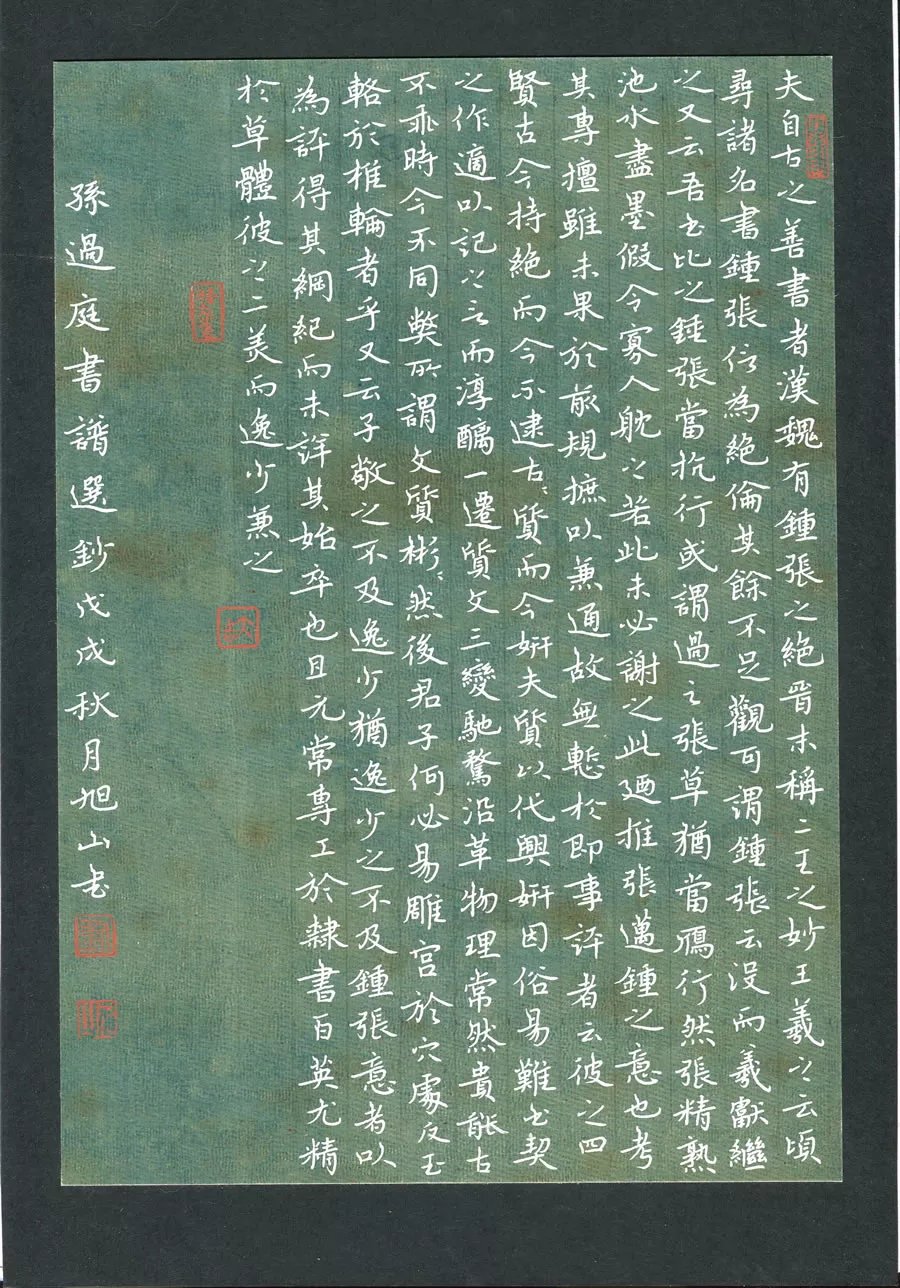 夫自古之善書者漢魏有鍾張之絕晉末稱二王之妙王羲之云頃
尋諸名書鍾張信為絕倫其餘不足觀可謂鍾張云沒而羲獻繼
之又云吾書比之鍾張當抗行或謂過之張草猶當鴈行然張精熟
池水盡墨假令寡人耽之若此未必謝之此廼推張邁鍾之意也考
其專擅雖未果於前規摭以兼通故無慙於即事評者云彼之四
賢古今特絕而今不逮古〻質而今妍夫質以代興妍因俗易雖書契
之作適以記之言而淳醨一遷質文三變馳騖沿革物理常然貴能古
不乖時今不同獘所謂文質彬〻然後君子何必易雕宮於穴處反玉
輅於椎輪者乎又云子敬之不及逸少猶逸少之不及鍾張意者以
為評得其綱紀而未詳其始卒也且元常專工於隸書百英尤精
於草體彼之二美而逸少兼之
孫過庭書譜選鈔戊戌秋月旭山書